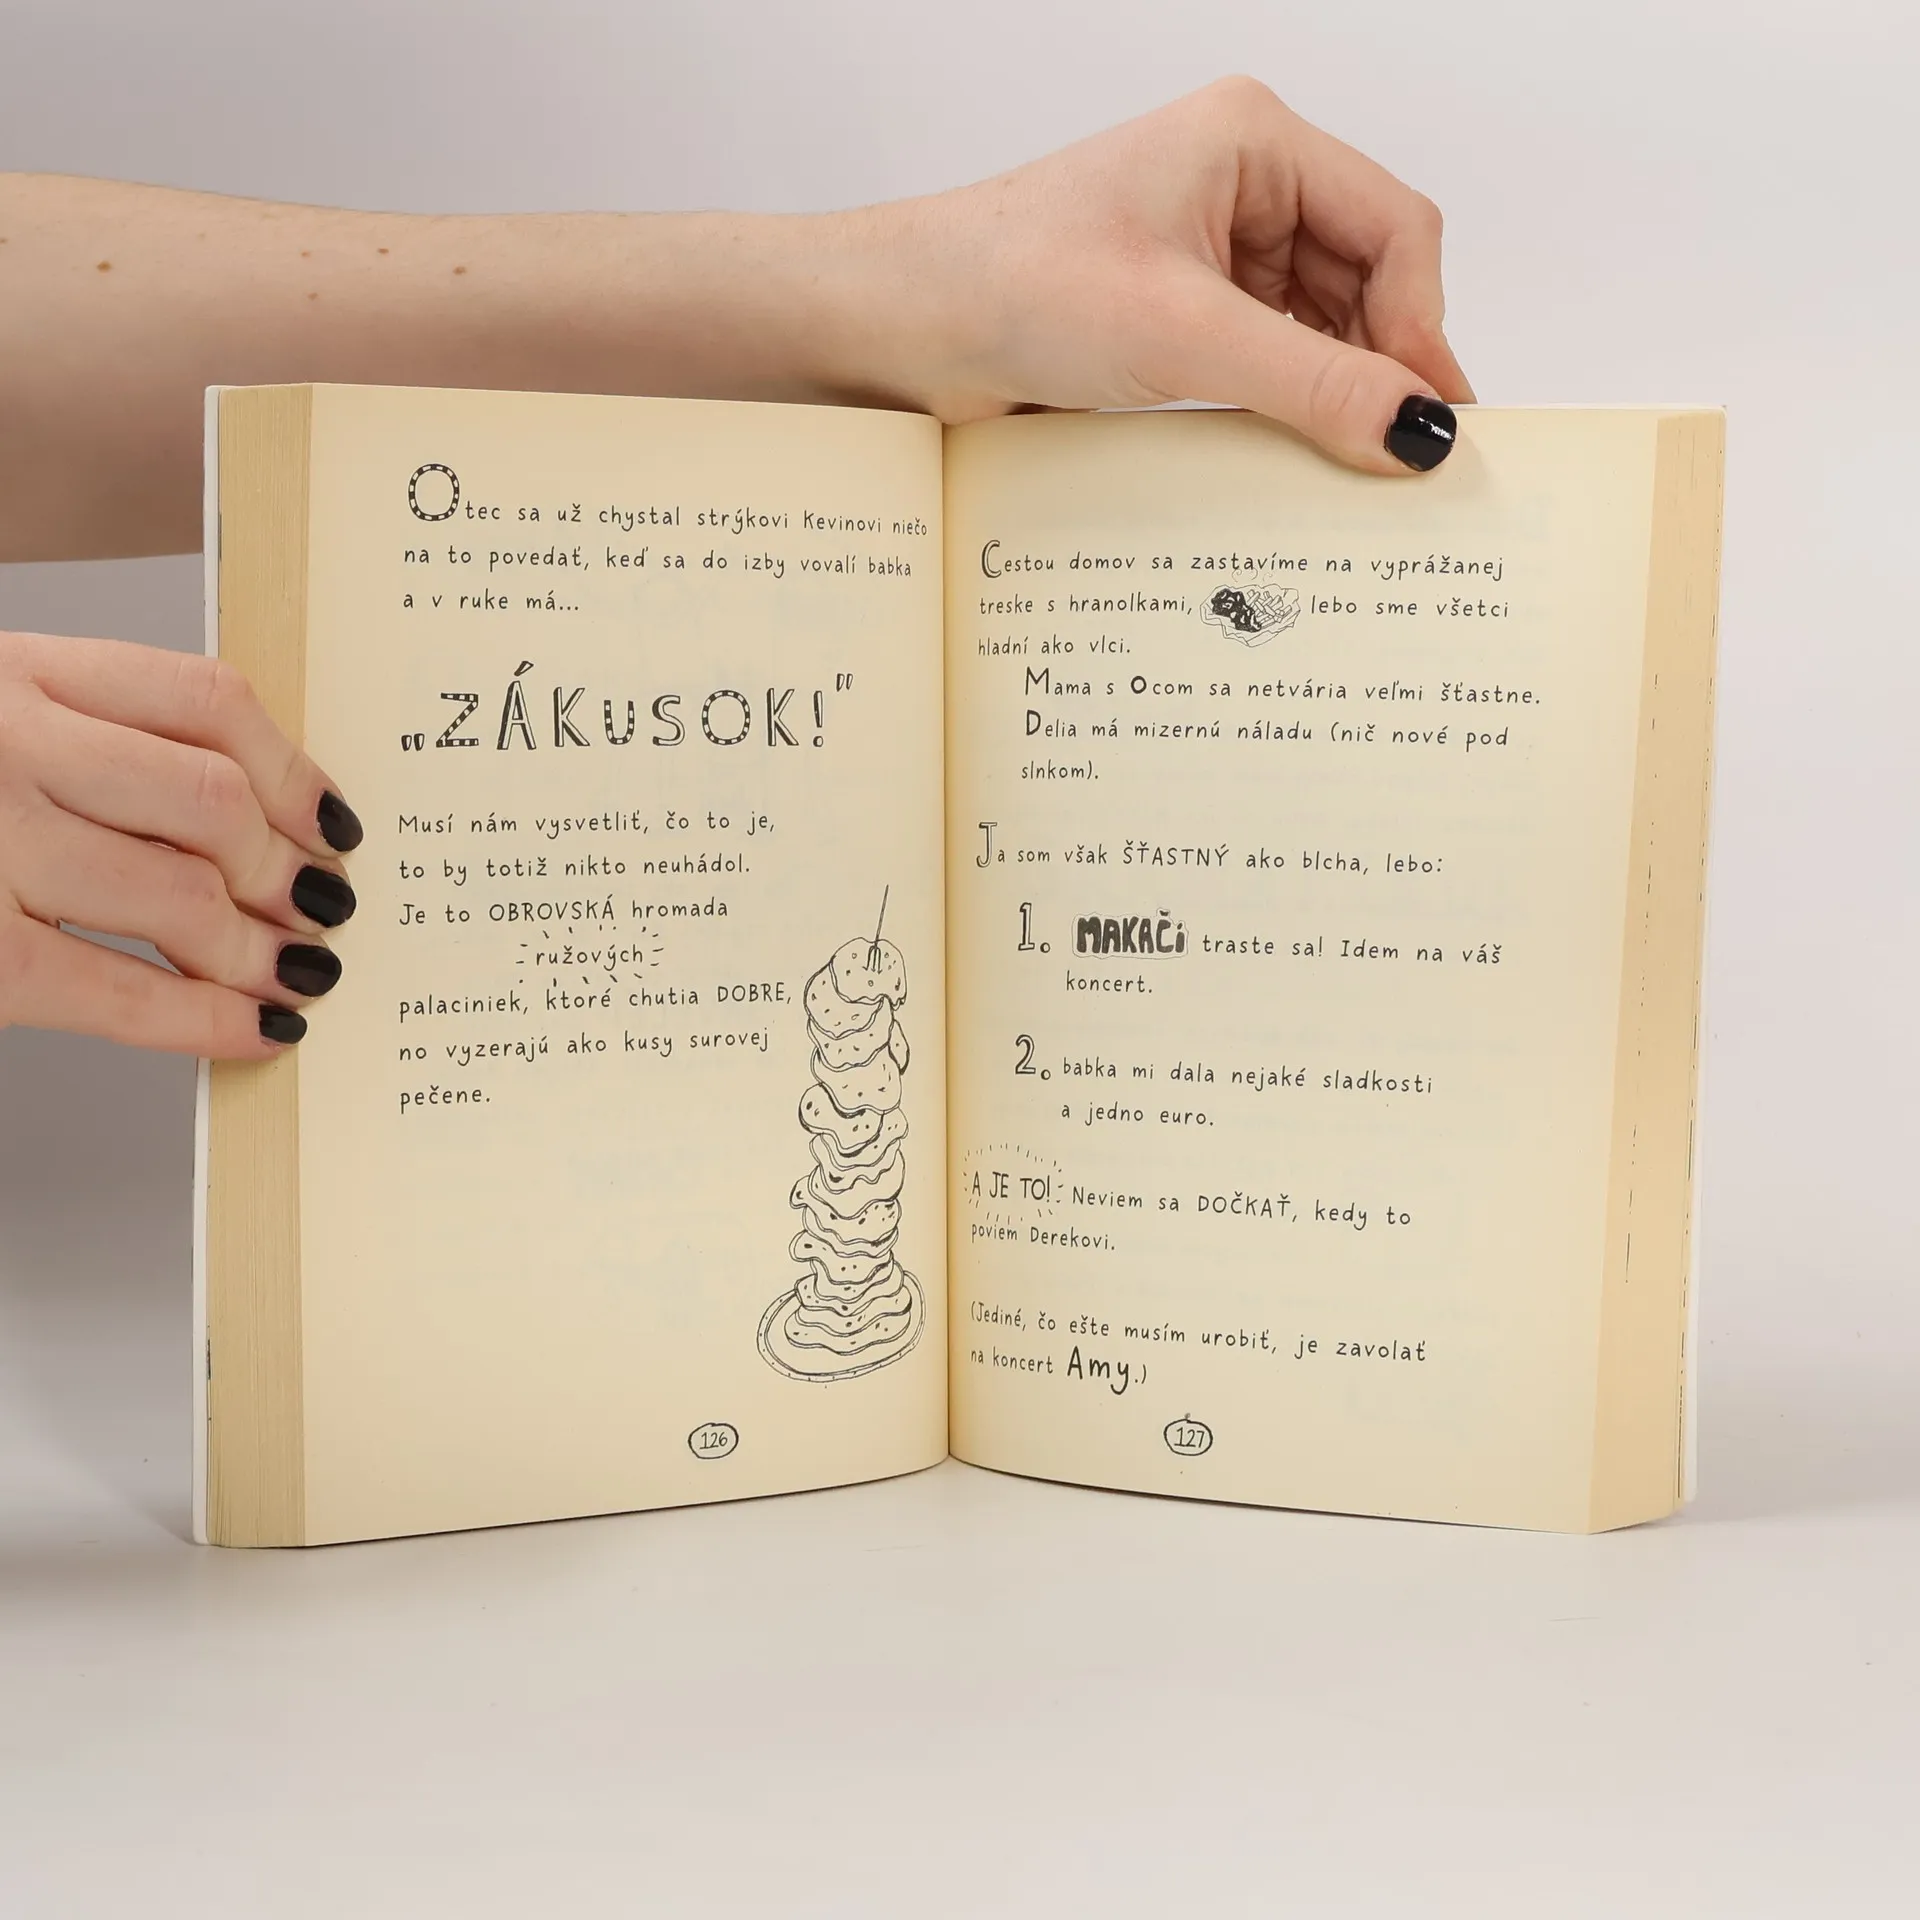 Otec sa už chystal strýkovi Kevinovi niečo
na to povedať, keď sa do izby vovalí babka
a v ruke má...
„ZÁKUSOK!"
Musí nám vysvetliť, čo to je,
to by totiž nikto neuhádol.
Je to OBROVSKÁ hromada
ružových
palaciniek, ktoré chutia DOBRE,
no vyzerajú ako kusy surovej
pečene.
126
Cestou domov sa zastavíme na vyprážanej
treske s hranolkami, lebo sme všetci
hladní ako vlci.
Mama s Ocom sa netvária veľmi šťastne.
Delia má mizernú náladu (nič nové pod
slnkom).
Ja som však ŠŤASTNÝ ako blcha, lebo:
1. MAKAČi traste sa! Idem na váš
koncert.
2. babka mi dala nejaké sladkosti
a jedno euro.
A JE TO! Neviem sa DOČKAŤ, kedy to
poviem Derekovi.
(Jediné, čo ešte musím urobiť, je zavolať
na koncert Amy.)
127